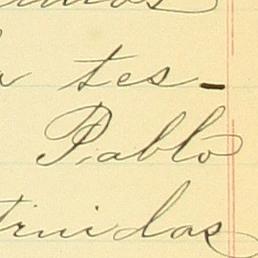 tes-
Pablo
trinidas